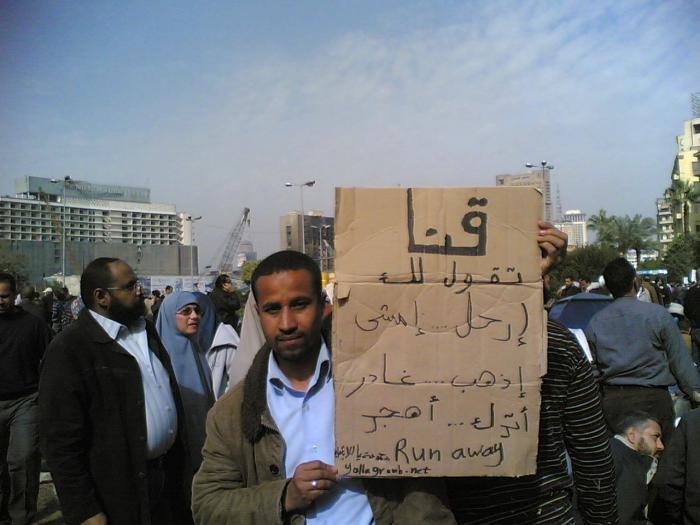 قنا
تقول لك
إرحل... إمشى
إذهب... غادر
أترك... أهجر
Run away
yallagroub.net